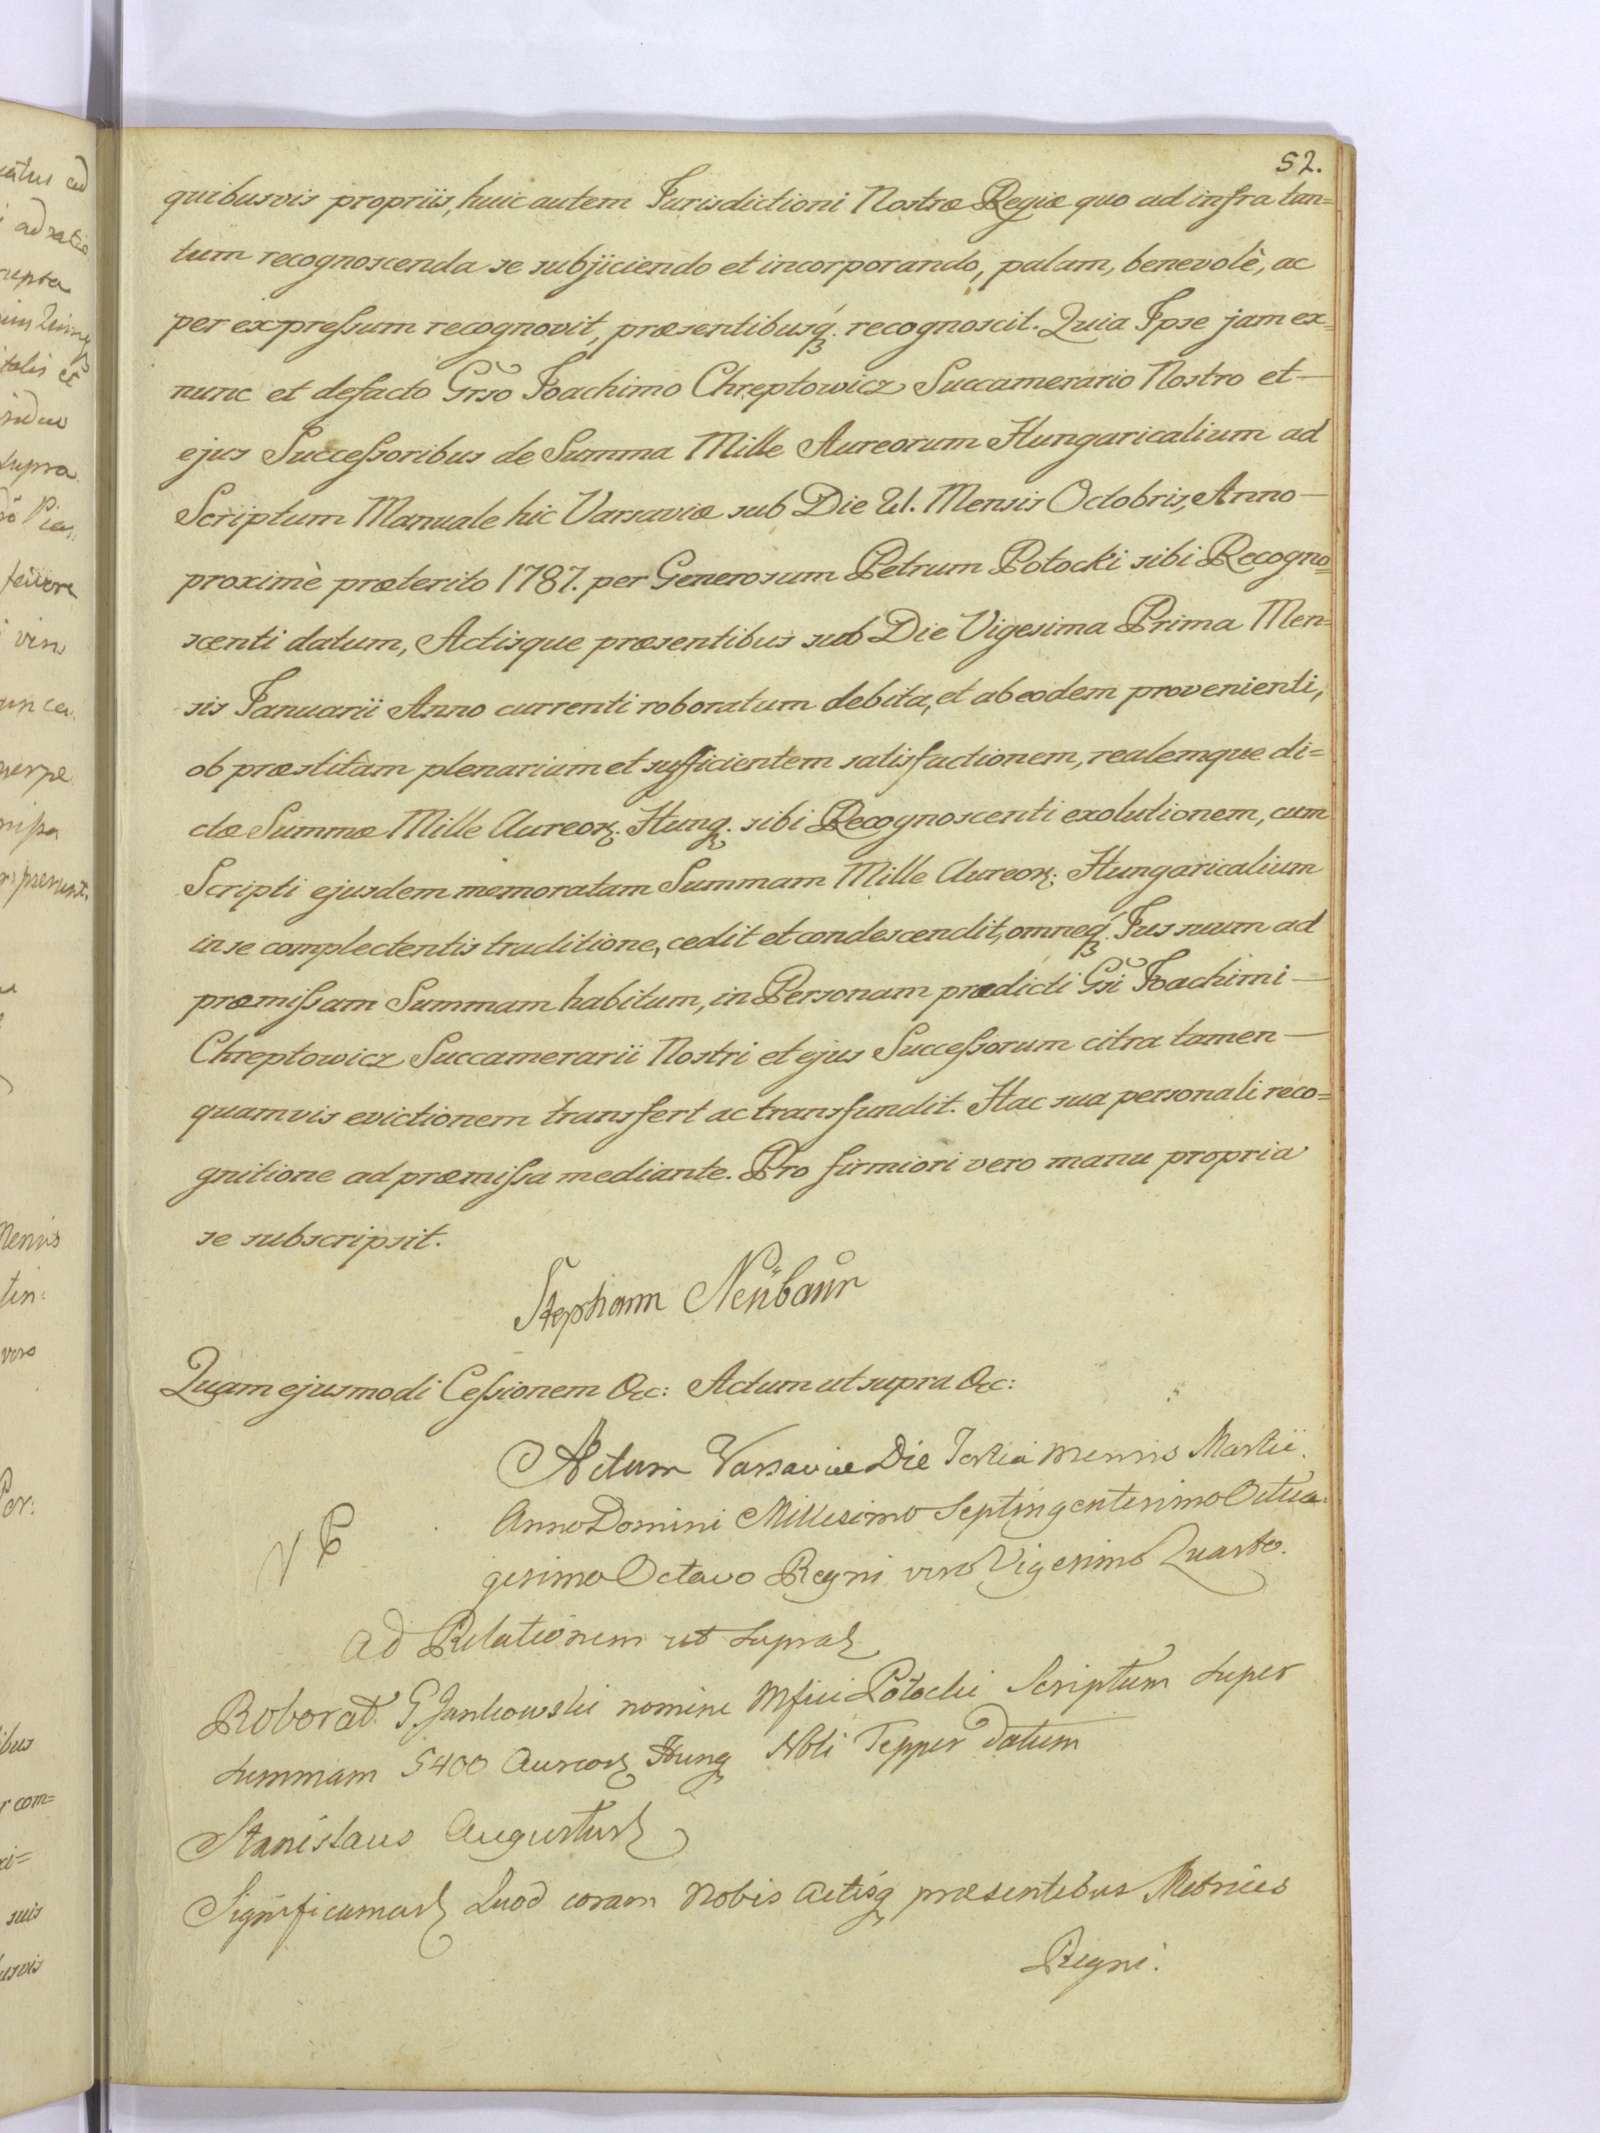 52.
quibusvis propriis, huic autem Jurisdictioni Nostræ Regiæ quo ad infra tan=
tum recognoscenda se subjiciendo et incorporando, palam, benevolè, ac
per expressum recognovit, præsentibusq́ꝫ. recognoscit. Quia Ipse jam ex=
nunc et defacto Grso Joachimo Chreptowicz Succamerario Nostro et—
ejus Successoribus de Summa Mille Aureorum Hungaricalium ad
Scriptum Manuale hic Varsaviæ sub Die 21. Mensis Octobris, Anno—
proximè præterito 1787. per Generosum Petrum Potocki sibi Recogno=
scenti datum, Actisque præsentibus sub Die Vigesima Prima Men=
sis Januarii Anno currenti roboratum debita, et ab eodem provenienti,
ob præstitam plenariam et sufficientem satisfactionem, realemque di=
ctæ Summæ Mille Aureoꝝ. Hungꝫ. sibi Recognoscenti exolutionem, cum
Scripti ejusdem memoratam Summam Mille Aureoꝝ: Hungaricalium
in se complectentis traditione, cedit et condescendit, omneq́ꝫ. Jus suum ad
præmissam Summam habitum, in Personam prædicti Gsi Joachimi—
Chreptowicz Succamerarii Nostri et ejus Successorum citra tamen—
quamvis evictionem transfert ac transfundit. Hac sua personali reco=
gnitione ad præmissa mediante. Pro firmiori vero manu propria
se subscripsit.
Stephann Neübaŭr
Quam ejusmodi Cessionem &c: Actum ut supra &c:
Actum Varsaviæ Die Tertia Mensis Martii.
Anno Domini Millesimo Septingentesimo Octua=
gesimo Octavo Regni vero Vigesimo Quarto.
Ad Relationem ut supra
Roborat. G. Jankowski nomine Mfici Potocki Scriptum super
summam 5400 Aureoꝝ Hungꝫ Nbli Tepper datum
Stanislaus Augustus
Significamus Quod coram Nobis Actisqꝫ præsentibus Metrices
Regni.